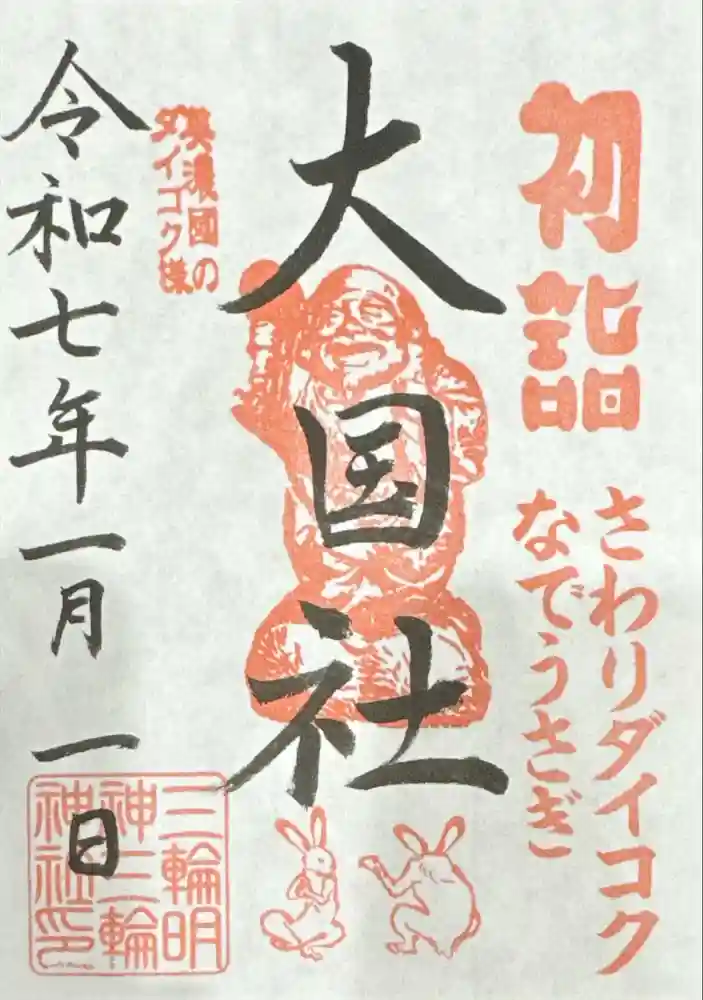 初詣
さわりダイコク
なでうさぎ
大国社
美濃國の
ダイコク様
令和七年一月一日
三輪明
神三輪
神社印